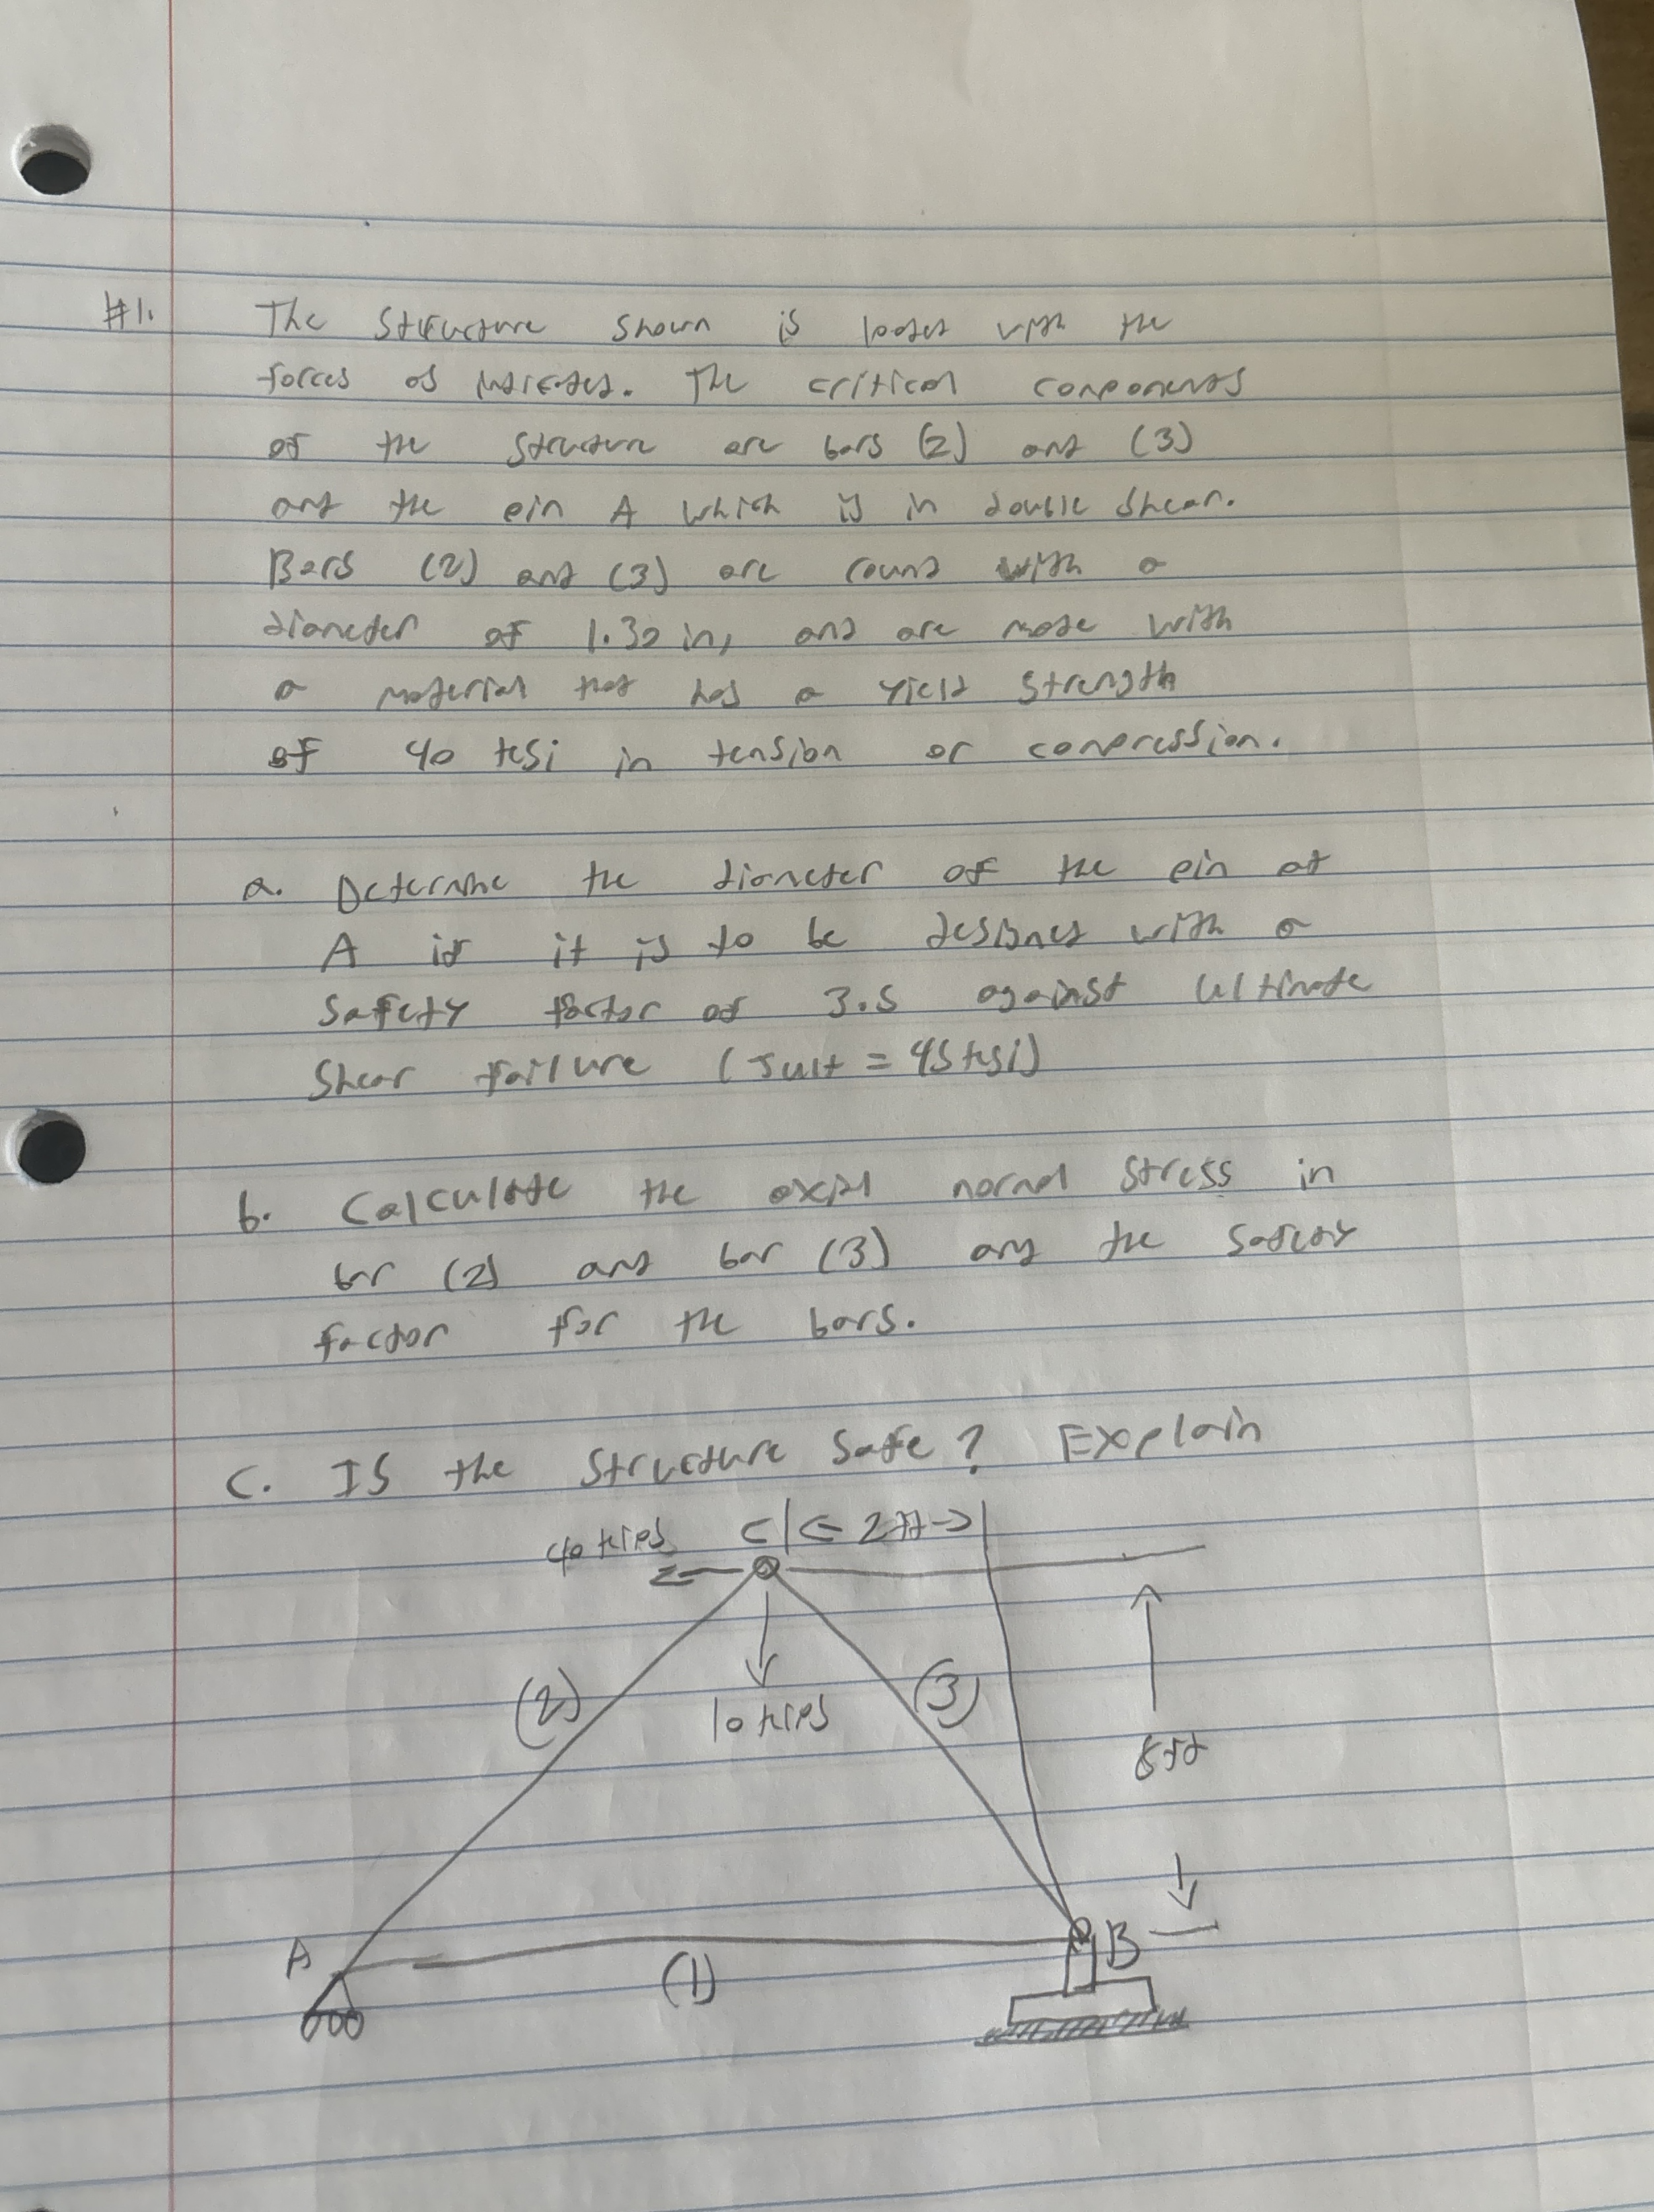 #1. The Structure Shown is loaded with the
forces as indicated. The critical components
of the Structure are bars (2) and (3)
and the pin A which is in double Shear.
Bars (2) and (3) are round with a
diameter of 1.30 in, and are made with
a material that has a yield Strength
of 40 ksi in tension or compression.
a. Determine the diameter of the pin at
A if it is to be designed with a
Safety factor of 3.5 against ultimate
Shear failure (Tult = 45 ksi)
b. Calculate the axial normal Stress in
bar (2) and bar (3) and the safety
factor for the bars.
C. IS the Structure Safe? Explain
40 kips C |← 2ft →|
(2) (3)
10 kips
8ft
A B
(1)